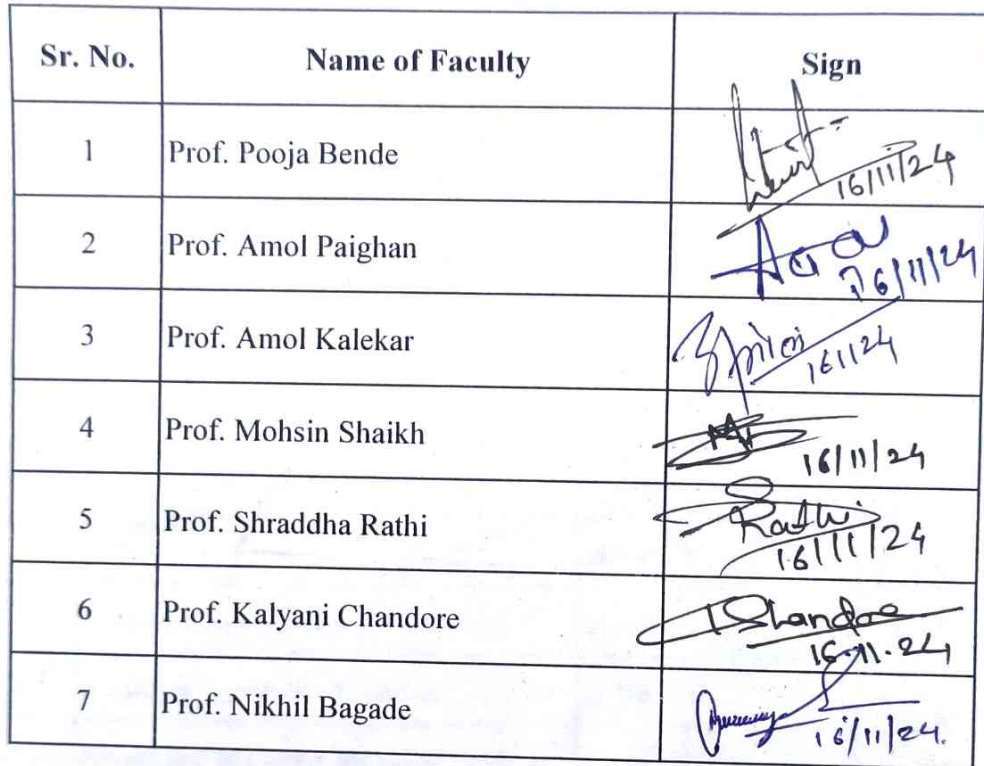 Sr. No. Name of Faculty Sign
1 Prof. Pooja Bende 16/11/24
2 Prof. Amol Paighan 16/11/24
3 Prof. Amol Kalekar 16/11/24
4 Prof. Mohsin Shaikh 16/11/24
5 Prof. Shraddha Rathi Rathi 16/11/24
6 Prof. Kalyani Chandore 16.11.24
7 Prof. Nikhil Bagade 16/11/24.